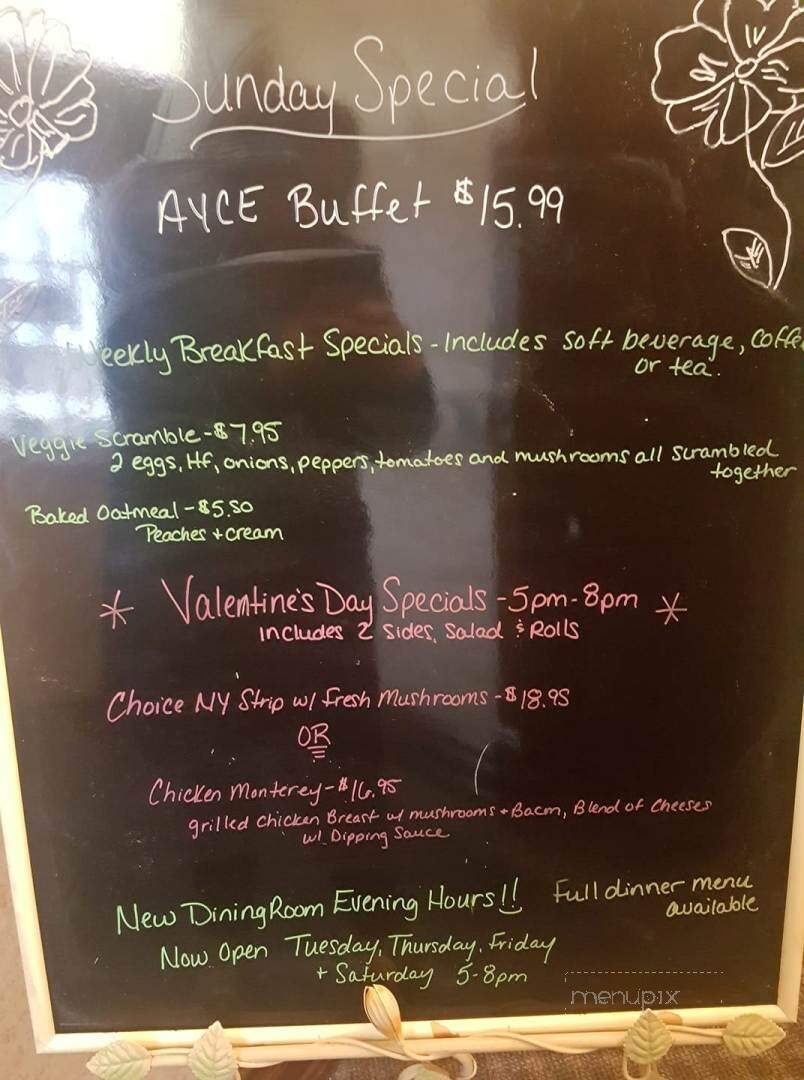 Sunday Special
AYCE Buffet $15.99
Weekly Breakfast Specials - Includes soft beverage, Coffe
or tea.
Veggie Scramble - $7.95
2 eggs, HF, onions, peppers, tomatoes and mushrooms all scrambled
together
Baked Oatmeal - $5.50
Peaches + cream
* Valentine's Day Specials - 5pm - 8pm *
includes 2 sides, Salad & Rolls
Choice NY Strip w/ fresh Mushrooms - $18.95
OR
Chicken Monterey - $16.95
grilled Chicken Breast w/ mushrooms + Bacon, Blend of Cheeses
w/ Dipping Sauce
New Dining Room Evening Hours!! Full dinner menu
available
Now Open Tuesday, Thursday, Friday
+ Saturday 5-8pm
menupix